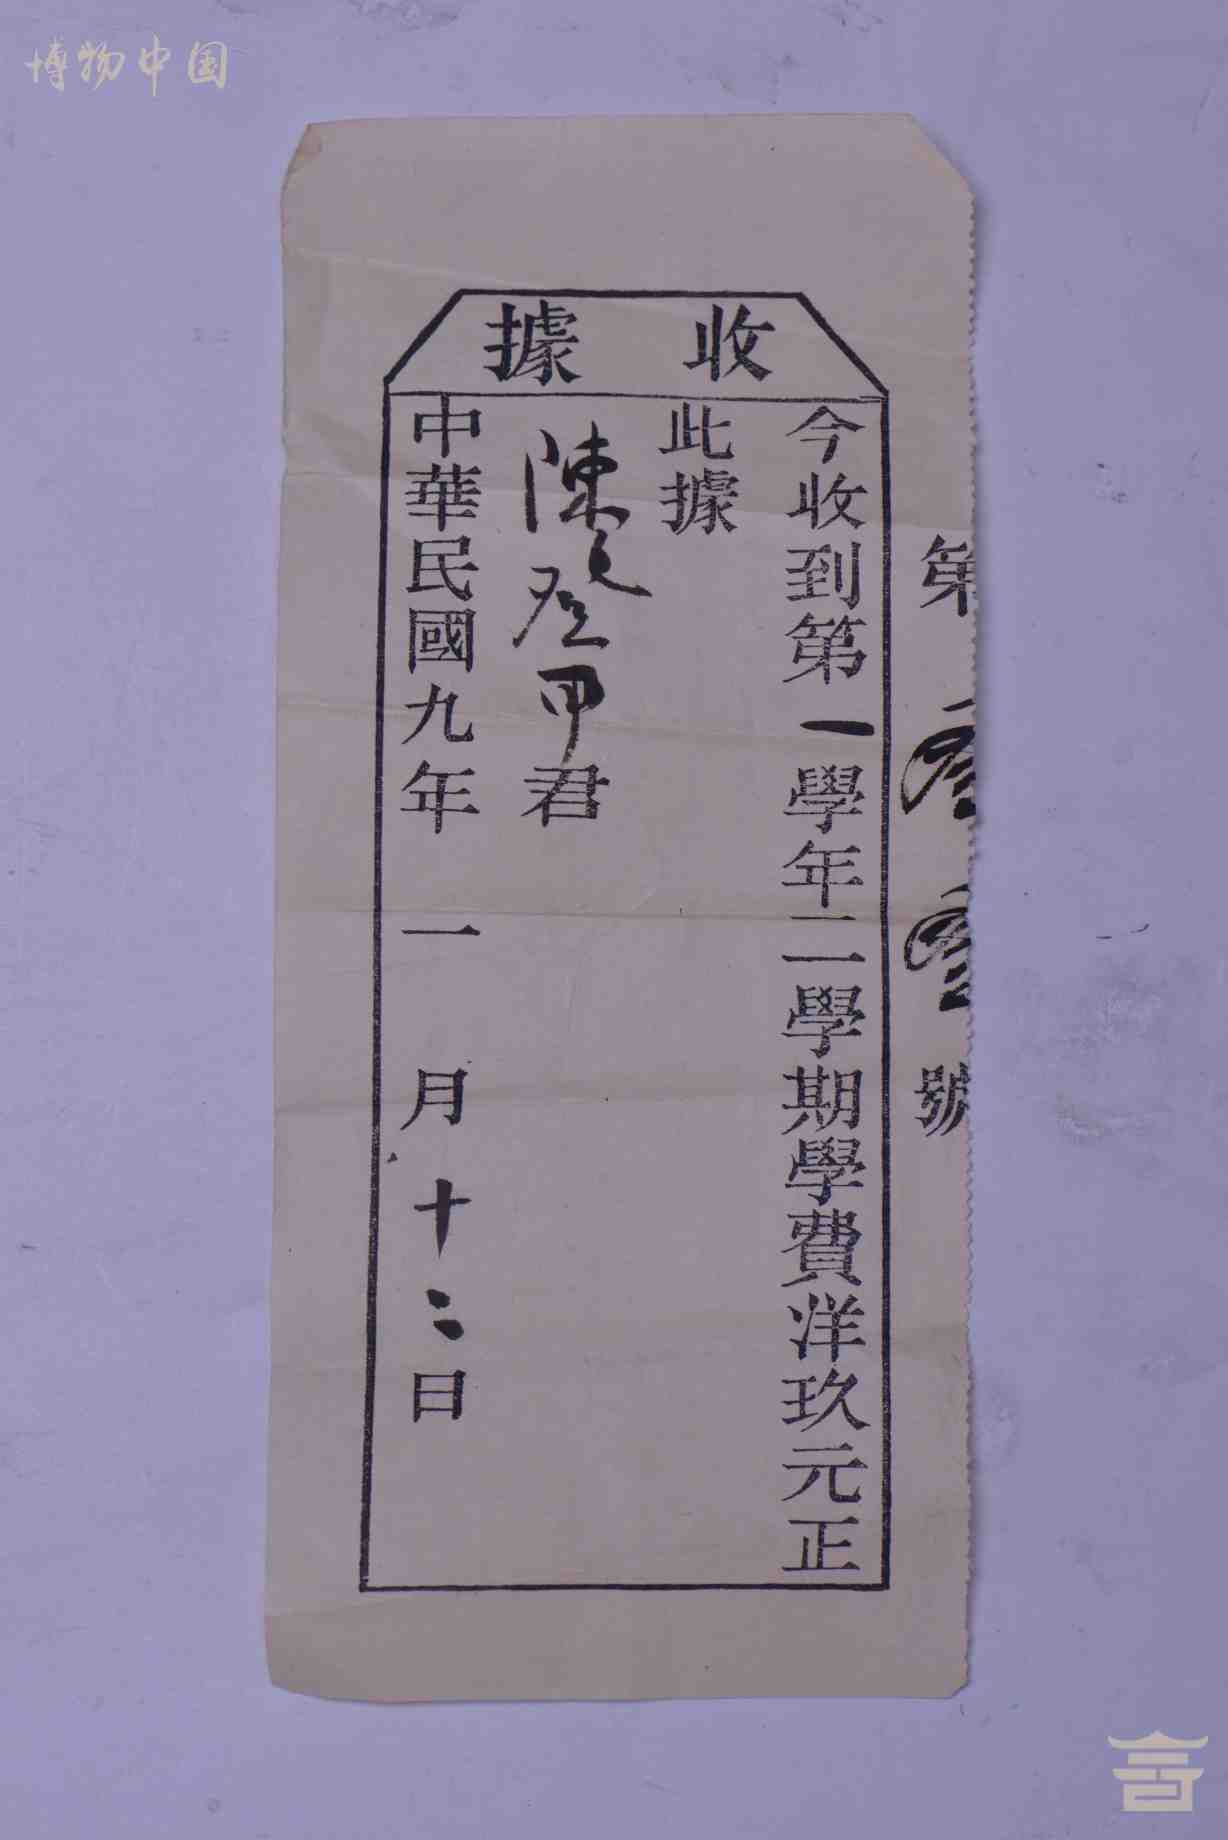 博物中国
收據
第叁叁號
今收到第一學年二學期學費洋玖元正
此據
陳元登甲君
中華民國九年一月十二日